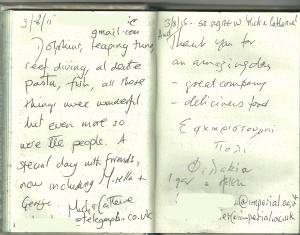 gmail.com
Dolphins, leaping tuna,
reef diving, al dente
pasta, fish, all those
things were wonderful
but even more so
were the people. A
special day with friends,
now including Mirella +
George.
telegraph.co.uk
Thank you for
an amazing day
- great company
- delicious food
Ευχαριστουμε
Πολι
Φιλακια
@imperial.ac.uk
@imperial.ac.uk